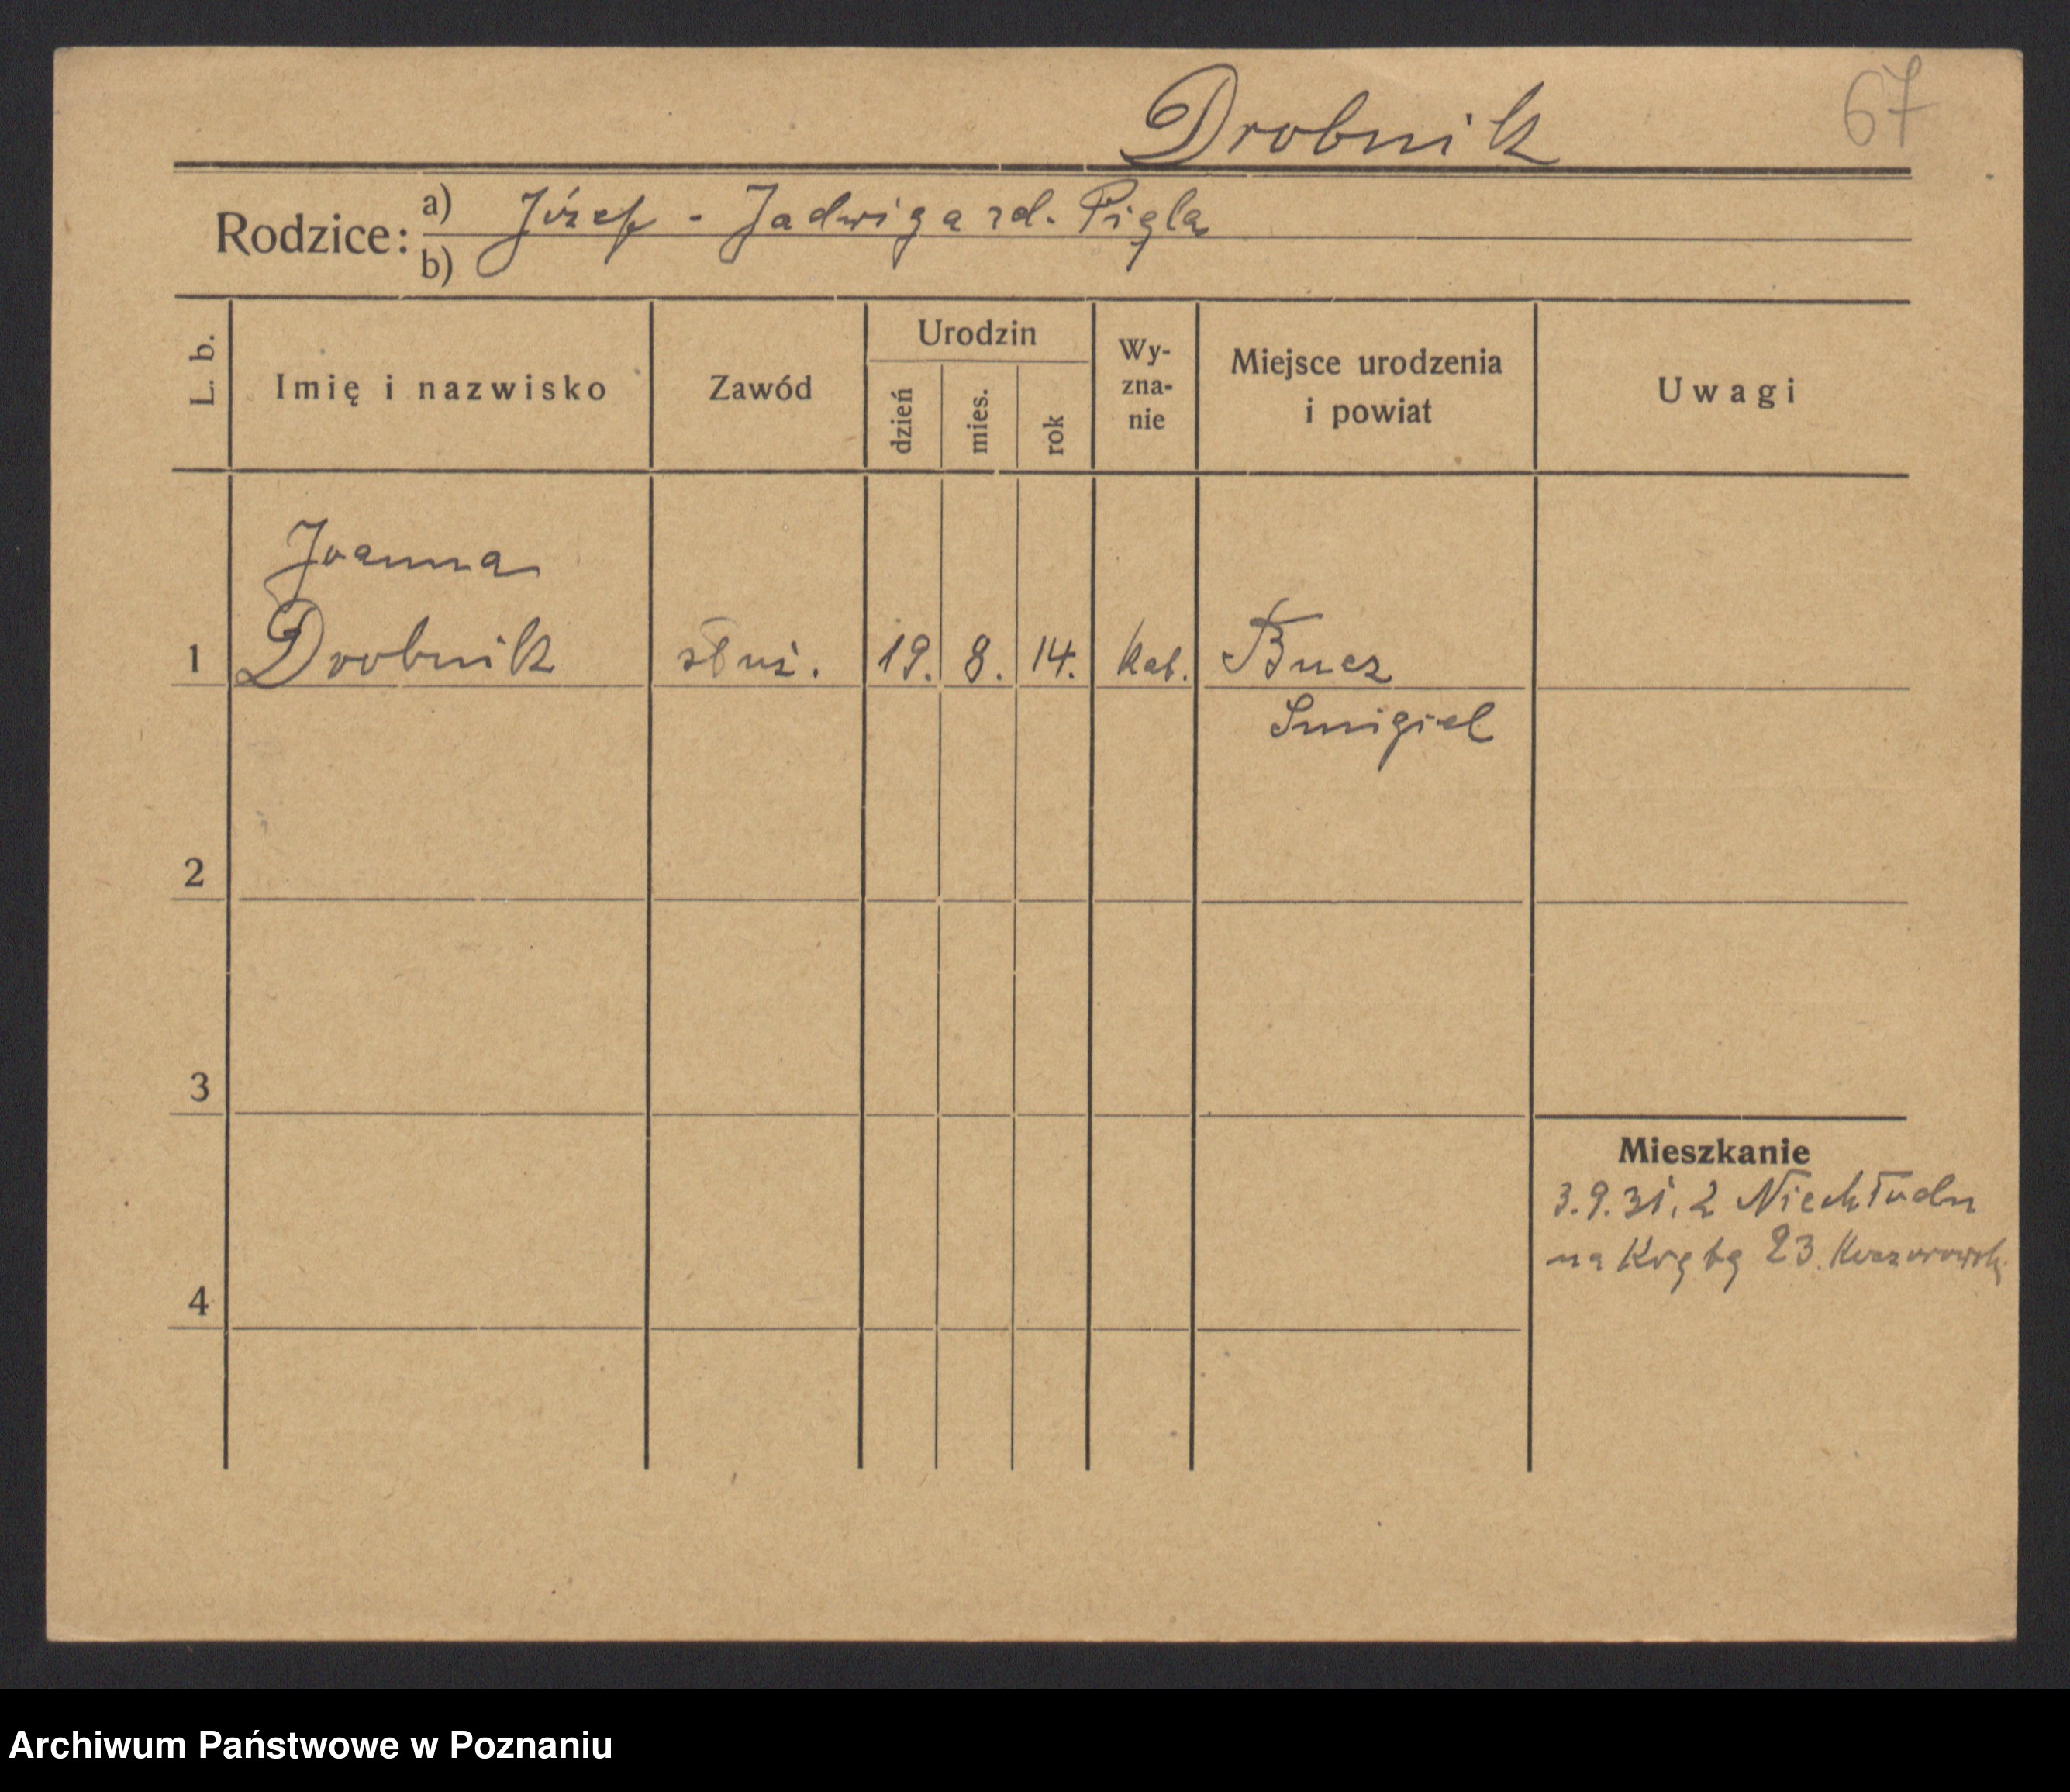 Drobnik
67
Rodzice: a) Józef - Jadwiga rd. Pigla
b)
L. b.
Imię i nazwisko
Zawód
Urodzin
dzień
mies.
rok
Wy-
zna-
nie
Miejsce urodzenia
i powiat
Uwagi
Joanna
1 Drobnik służ. 19. 8. 14. kat. Bucz
Smigiel
2
3
Mieszkanie
3.9.31. z Niechłodu
na 23.
4
Archiwum Państwowe w Poznaniu